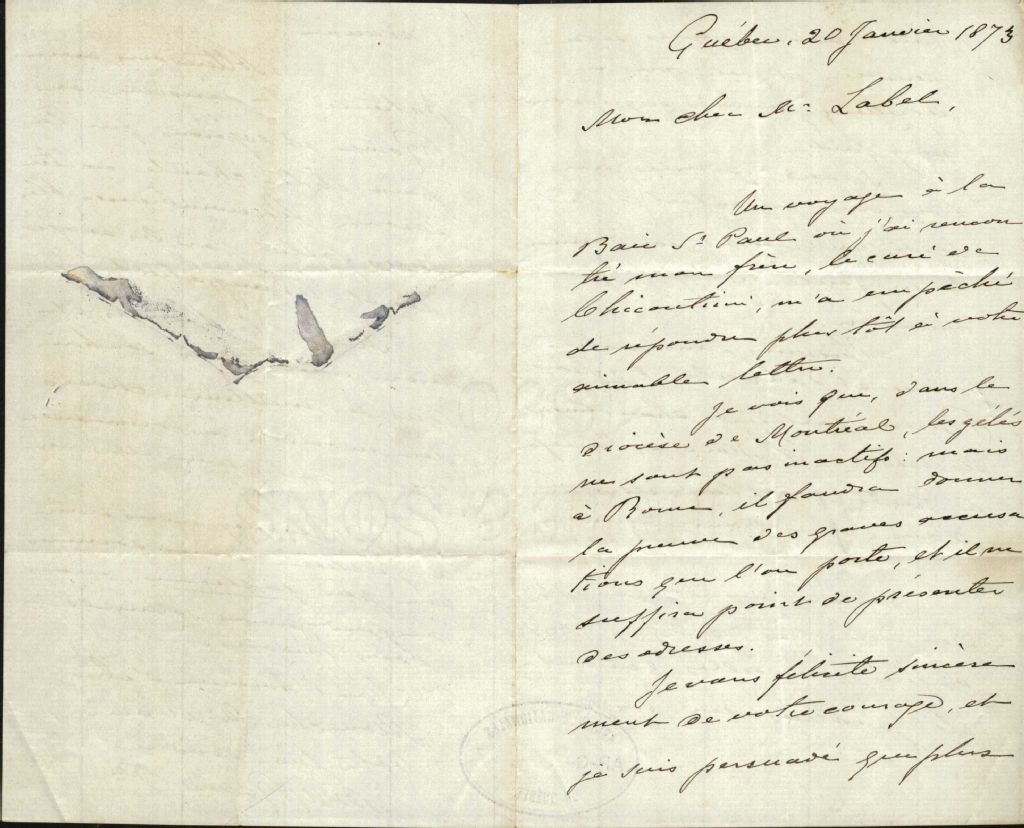 Québec, 20 Janvier 1873
Mon cher Mr. Label,
Un voyage à la
Baie St. Paul où j'ai rencon
tré mon frère, le curé de
Chicoutimi, m'a empêché
de répondre plus tôt à votre
aimable lettre.
Je vois que, dans le
diocèse de Montréal, les zélés
ne sont pas inactifs : mais
à Rome, il faudra donner
la preuve des graves accusa
tions que l'on porte, et il ne
suffira point de présenter
des adresses.
Je vous félicite sincère
ment de votre courage, et
je suis persuadé que plus